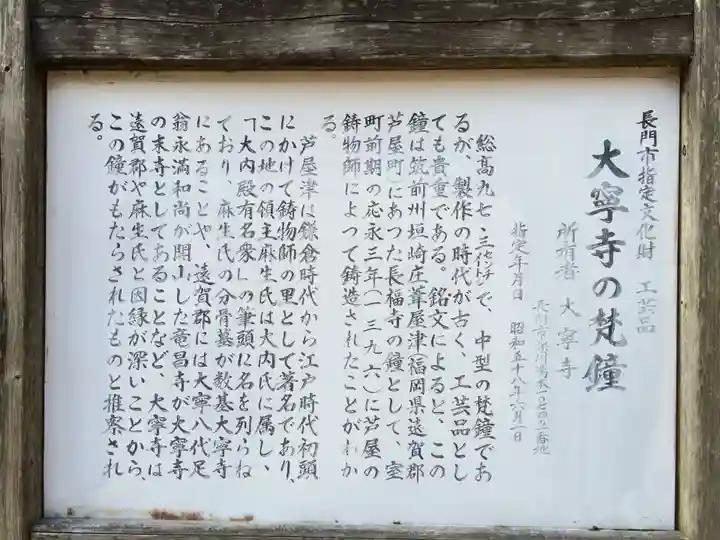 長門市指定文化財　工芸品
大寧寺の梵鐘
所有者　大寧寺
長門市深川湯本
指定年月日　昭和五十八年六月一日
総高九七・三センチメートルで、中型の梵鐘であ
るが、製作の時代が古く、工芸品とし
ても貴重である。銘文によると、この
鐘は筑前州垣崎庄葦屋津(福岡県遠賀郡
芦屋町)にあつた長福寺の鐘として、室
町前期の応永三年(一三九六)に芦屋の
鋳物師によつて鋳造されたことがわか
る。
芦屋津は鎌倉時代から江戸時代初頭
にかけて鋳物師の里として著名であり、
この地の領主麻生氏は大内氏に属し、
「大内殿有名衆」の筆頭に名を列らね
ており、麻生氏の分骨墓が数基大寧寺
にあることや、遠賀郡には大寧八代足
翁永満和尚が開山した竜昌寺が大寧寺
の末寺としてあることなど、大寧寺は
遠賀郡や麻生氏と因縁が深いことから、
この鐘がもたらされたものと推察され
る。